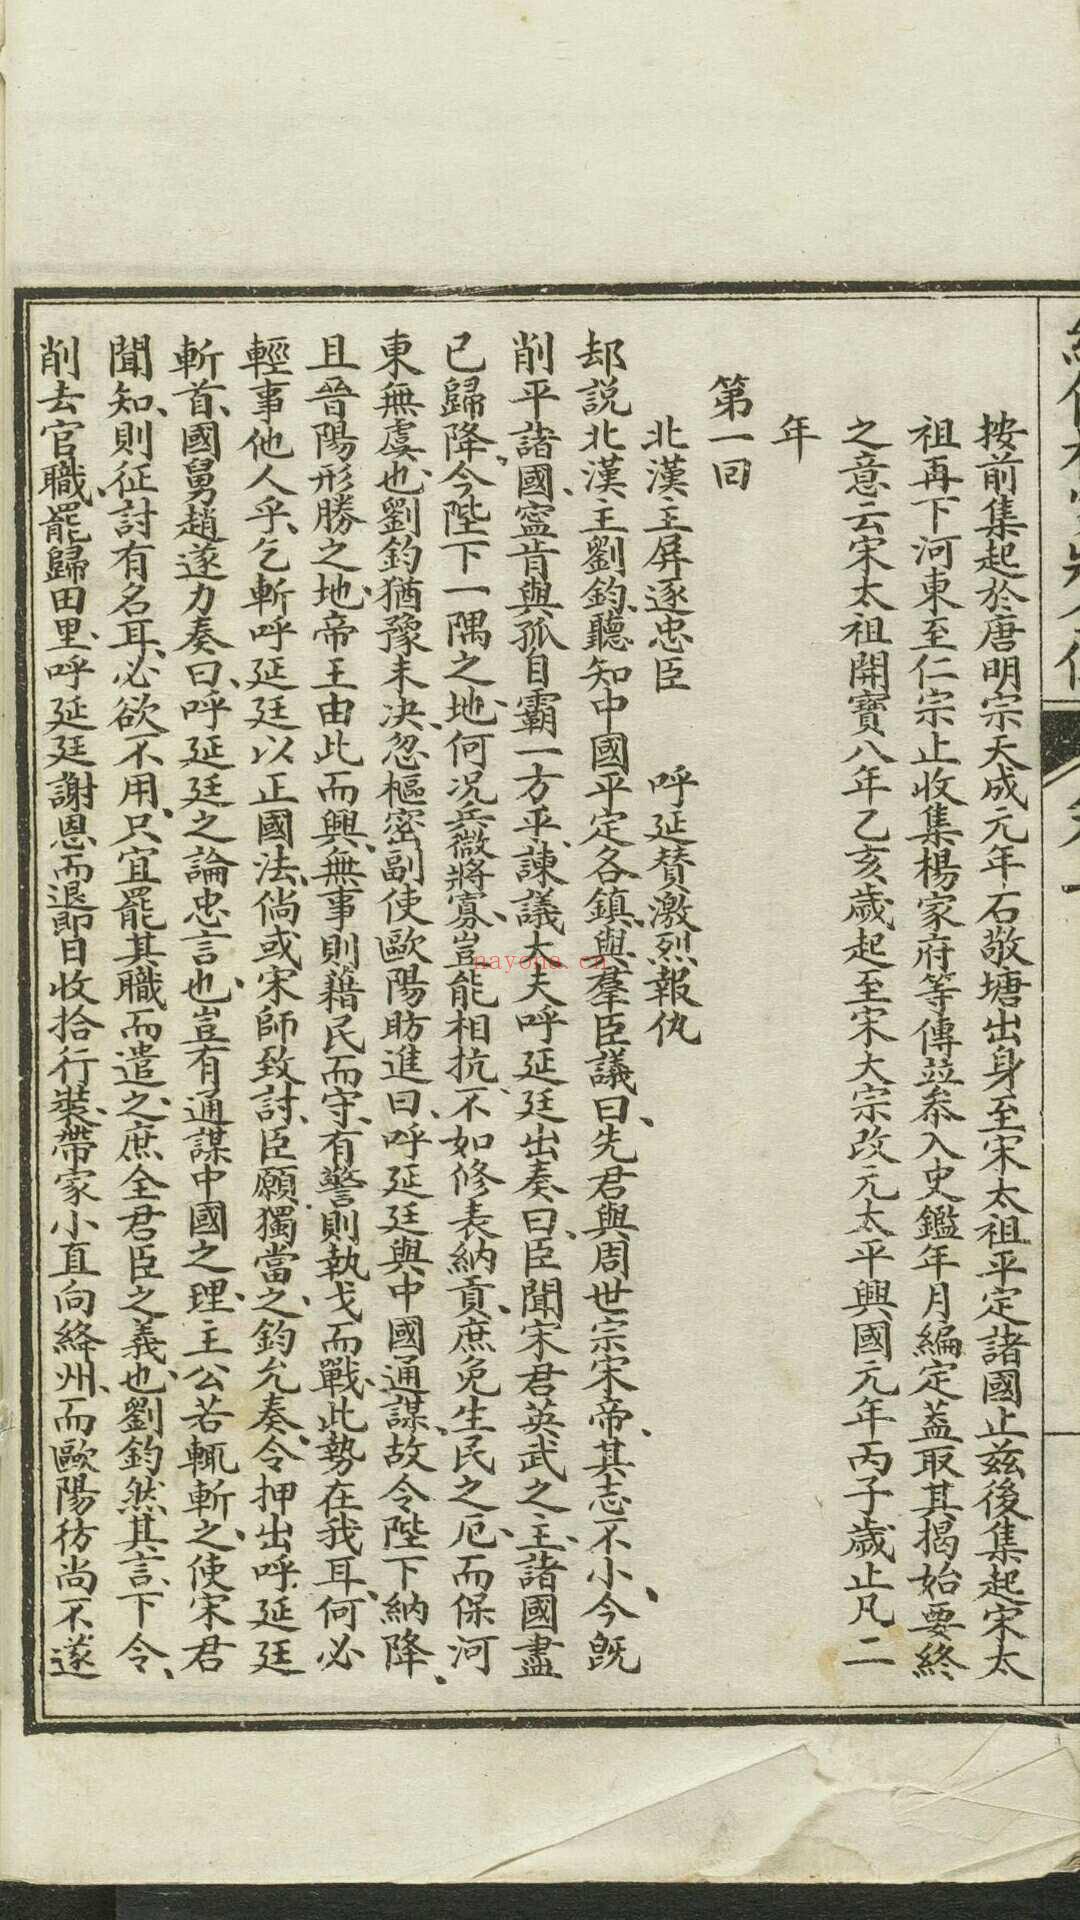 按前集起於唐明宗天成元年石敬塘出身至宋太祖平定諸國止茲後集起宋太
祖再下河東至仁宗止收集楊家府等傳並叅入史鑑年月編定蓋取其揭始要終
之意云宋太祖開寶八年乙亥歲起至宋大宗改元太平興國元年丙子歲止凡二
年
第一回
北漢主屏逐忠臣 呼延贊激烈報仇
却說北漢主劉鈞、聽知中國平定各鎮、與羣臣議曰、先君與周世宗宋帝、其志不小、今旣
削平諸國、寍肯與孤自霸一方乎、諫議大夫呼延廷出奏曰、臣聞宋君英武之主、諸國盡
已歸降、今陛下一隅之地、何況兵微將寡、豈能相抗、不如修表納貢、庶免生民之厄、而保河
東無虞也、劉鈞猶豫未決、忽樞密副使歐陽昉進曰、呼延廷與中國通謀、故令陛下納降、
且晉陽形勝之地、帝王由此而興、無事則藉民而守、有警則執戈而戰、此勢在我耳、何必
輕事他人乎、乞斬呼延廷以正國法、倘或宋師致討、臣願獨當之、鈞允奏、令押出呼延廷
斬首、國舅趙遂力奏曰、呼延廷之論忠言也、豈有通謀中國之理、主公若輒斬之、使宋君
聞知、則征討有名耳、必欲不用、只宜罷其職而遣之、庶全君臣之義也、劉鈞然其言、下令、
削去官職、罷歸田里、呼延廷謝恩而退、即日收拾行裝、帶家小直向絳州、而歐陽彷尚不遂
nayona.cn